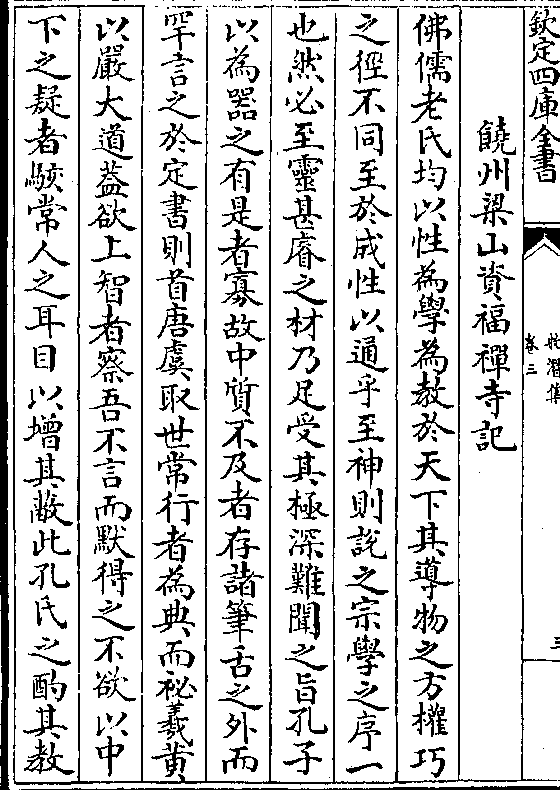 欽定四庫全書
卷三
饒州梁山資福禪寺記
佛儒老氏均以性為學為教於天下其導物之方權巧
之徑不同至於成性以通乎至神則說之宗學之序一
也然必至靈甚睿之材乃足受其極深難聞之旨孔子
以為器之有是者寡故中質不及者存諸筆舌之外而
罕言之於定書則首唐虞取世常行者為典而祕羲黄
以嚴大道葢欲上智者察吾不言而默得之不欲以中
下之疑者駭常人之耳目以增其蔽此孔氏之酌其教